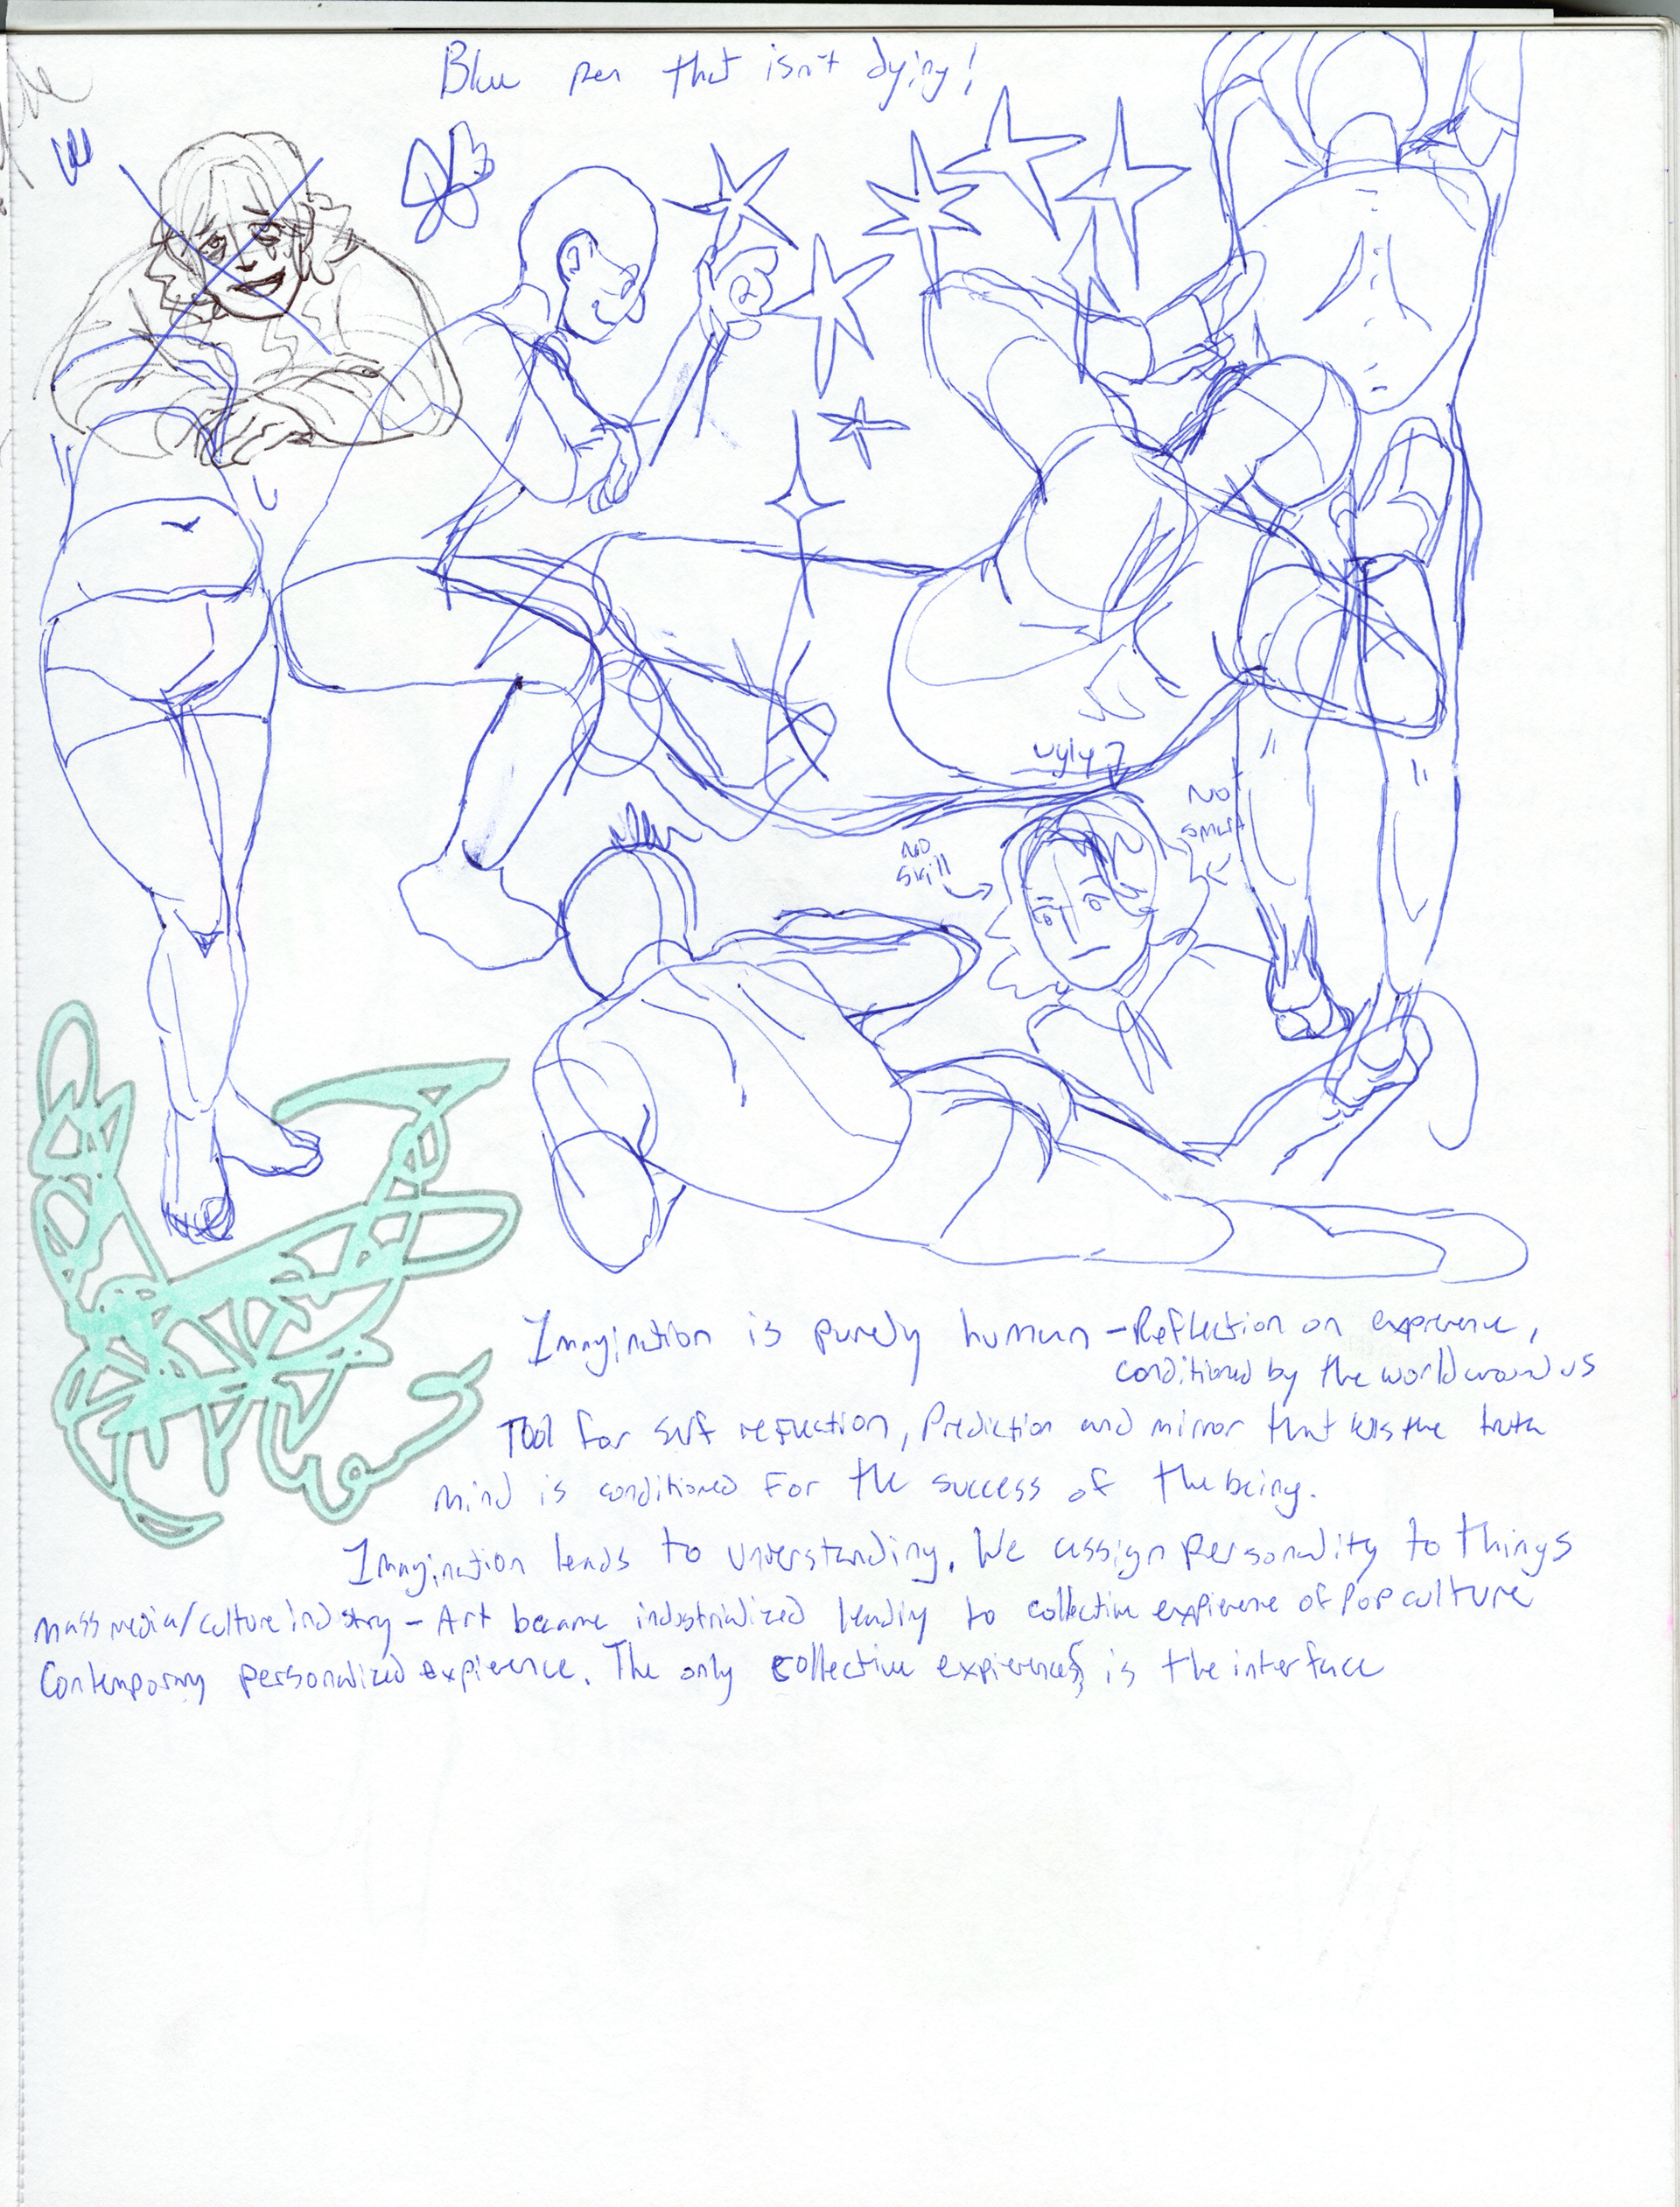 Blue pen that isn't dying!
ugly
NO
smart
NO
skill
Imagination is purely human - Reflection on exprience,
conditioned by the world around us
Tool for self reflection, Prediction and mirror that tells the truth
mind is conditioned for the success of the being.
Imagination leads to understanding. We assign personality to things
mass media/culture industry - Art became industrialized leading to collective expierence of Pop culture
Contemporary personalized expierence. The only collective expierences is the interface